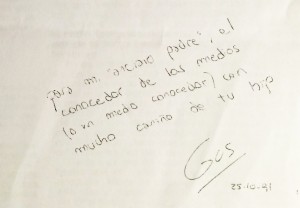 Para mi "
padre", el
conocedor de los miedos
(o un medio conocedor) con
mucho cariño de tu hijo
Gus
25-10-91